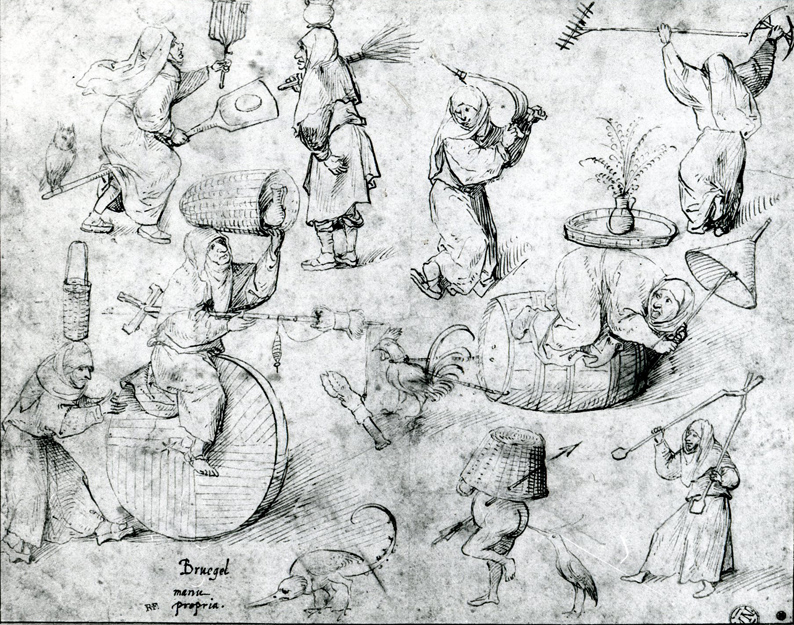 Bruegel
manu
RF. propria.